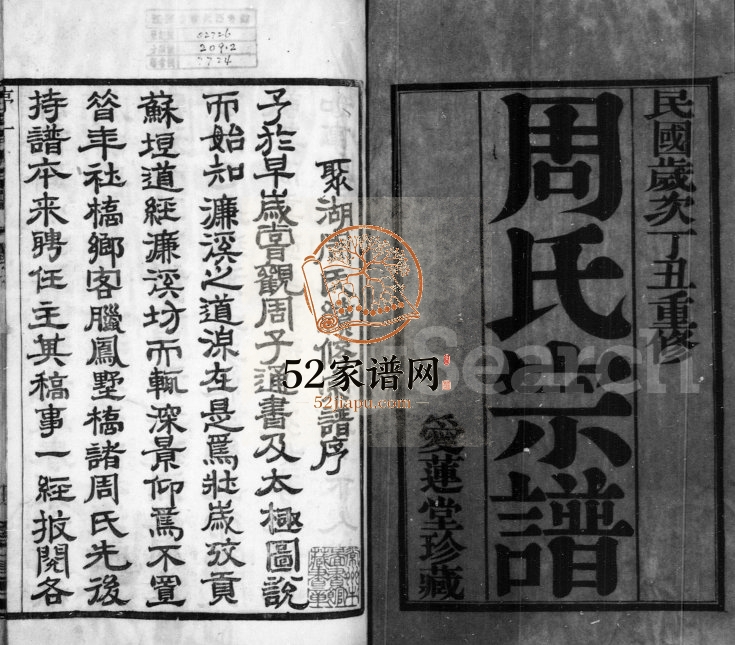 民國歲次丁丑重修
周氏宗譜
愛蓮堂珍藏
52726
209.2
7724
聚湖周氏修譜序
予於早歲嘗觀周子通書及太極圖說
而始知濂溪之道源在是焉壯歲攷貢
蘇垣道經濂溪坊而輒深景仰焉不置
客臘鳳墅橋諸周氏先後
持譜本来聘任主其稿事一經披閱各
序
52家谱网
52jiapu.com
Search